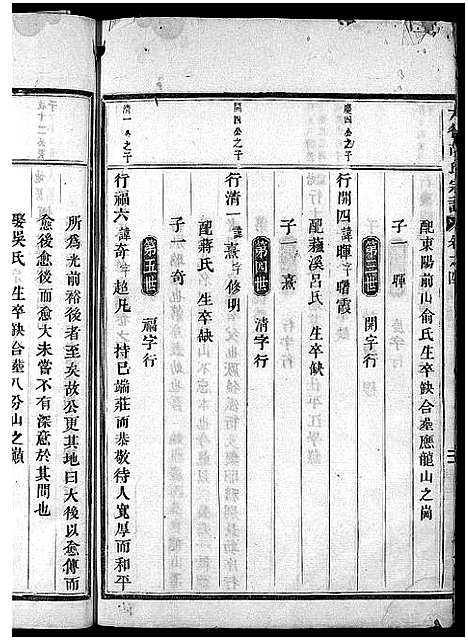 配東陽前山俞氏生卒缺合塟應龍山之崗
子一暉
第三世 開字行
慶四公之子
行開四諱暉字曙霞
配蘓溪呂氏生卒缺
子一熹
第四世 清字行
開四公之子
行清一諱熹字修明
配蔣氏生卒缺
子一奇
第五世 福字行
清一公之子
行福六諱奇字超凡持已端莊而恭敬待人寬厚而和平
所為光前裕後者至矣故公更其地曰大後以愈傳而
愈後愈後而愈大未嘗不有深意於其間也
娶吳氏生卒缺合塟八分山之巔